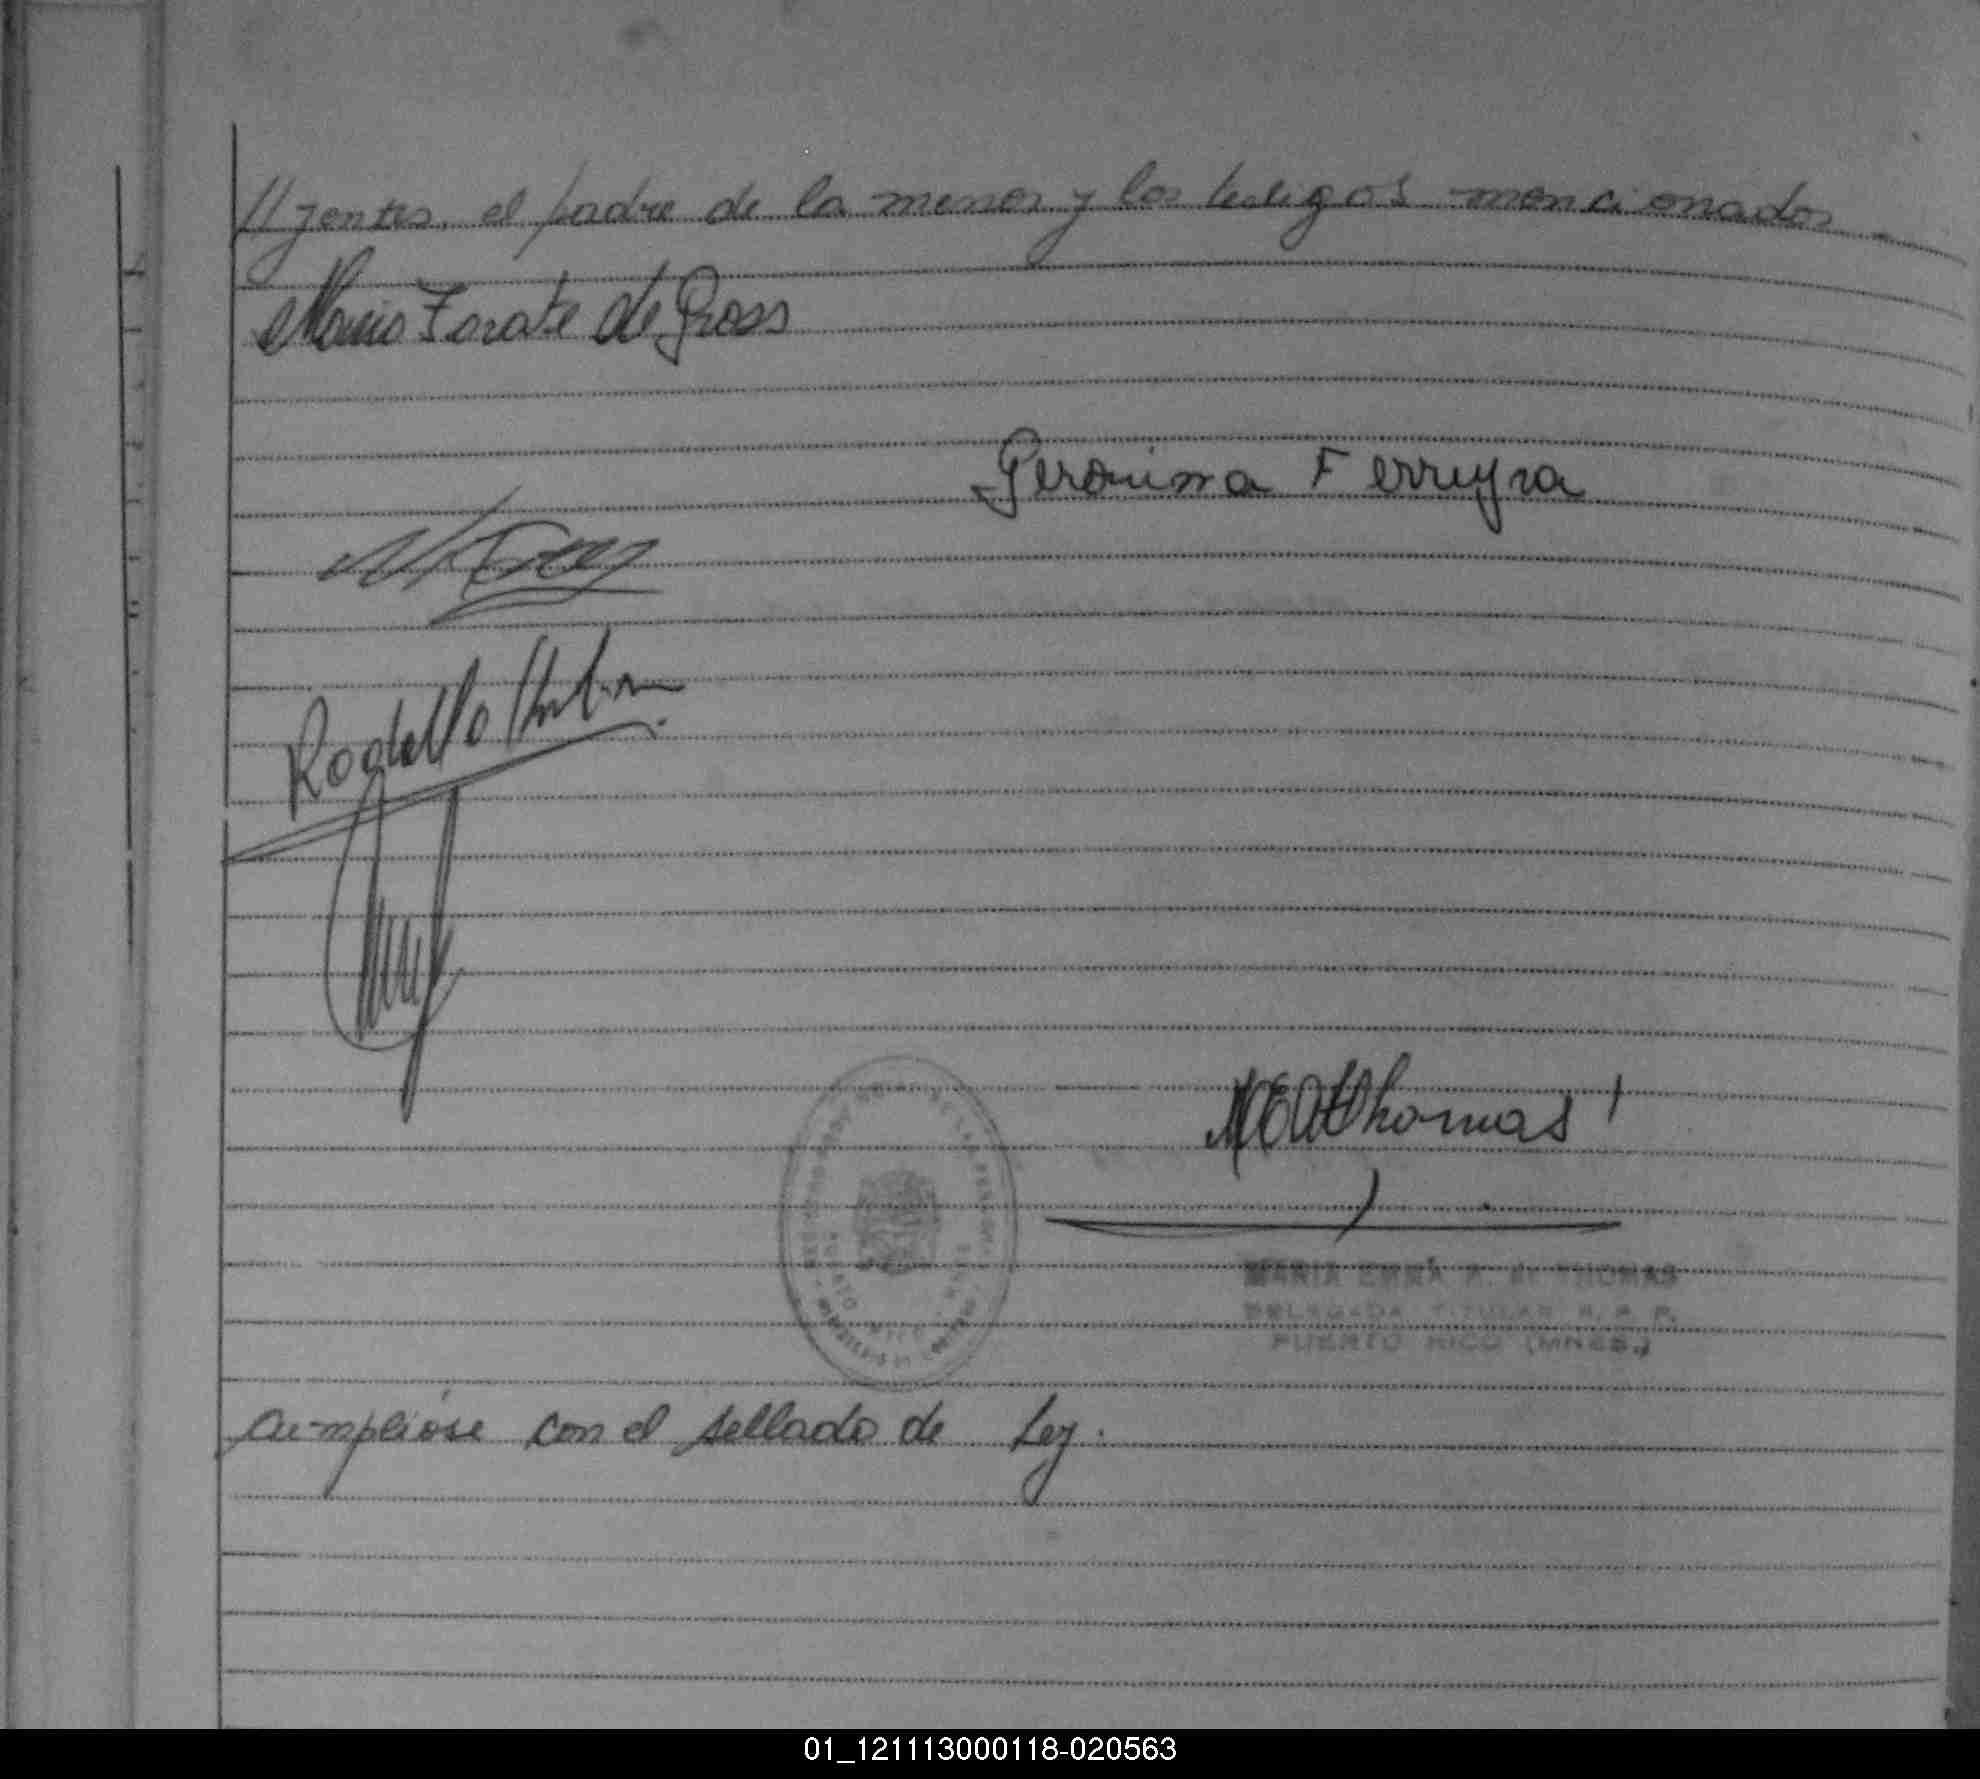 //yentes, el padre de la menor y los testigos mencionados.
Maria Zarate de Gross
Geronima Ferreyra
Rodolfo
MEA Thomas
MARIA EMMA A. M. THOMAS
DELEGADA TITULAR R. P. P.
PUERTO RICO (MNES.)
Cumplióse con el sellado de Ley.
01_121113000118-020563